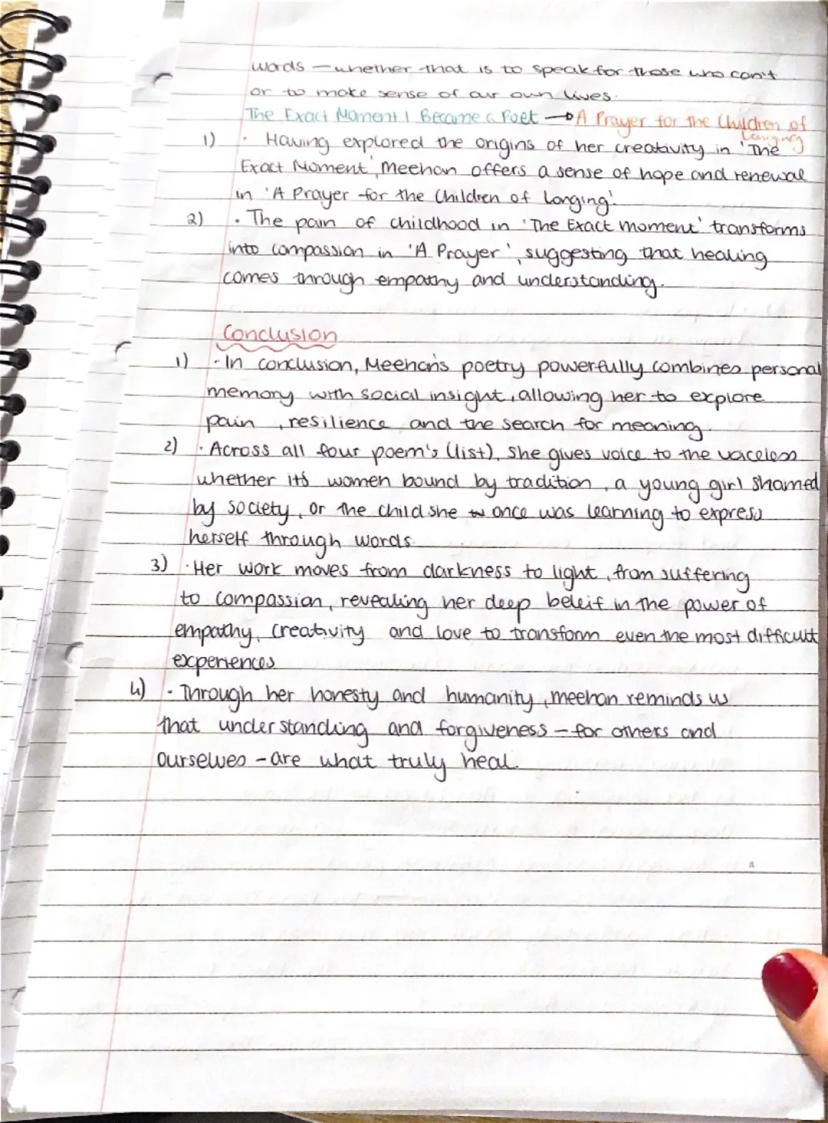 words – whether that is to speak for those who can't
or to make sense of our own lives.
The Exact Moment I Became a Poet → A Prayer for the Children of
Longing
1) · Having explored the origins of her creativity in 'The
Exact Moment', Meehan offers a sense of hope and renewal
in 'A Prayer for the Children of Longing'.
2) · The pain of childhood in 'The Exact moment' transforms
into compassion in 'A Prayer', suggesting that healing
comes through empathy and understanding.
Conclusion
1) · In conclusion, Meehan's poetry powerfully combines personal
memory with social insight, allowing her to explore
pain, resilience and the search for meaning.
2) · Across all four poem's (list), she gives voice to the voiceless
whether its women bound by tradition, a young girl shamed
by society, or the child she once was learning to express
herself through words.
3) · Her work moves from darkness to light, from suffering
to compassion, revealing her deep beleif in the power of
empathy, creativity and love to transform even the most difficult
experiences
4) · Through her honesty and humanity, meehan reminds us
that understanding and forgiveness – for others and
ourselves – are what truly heal.